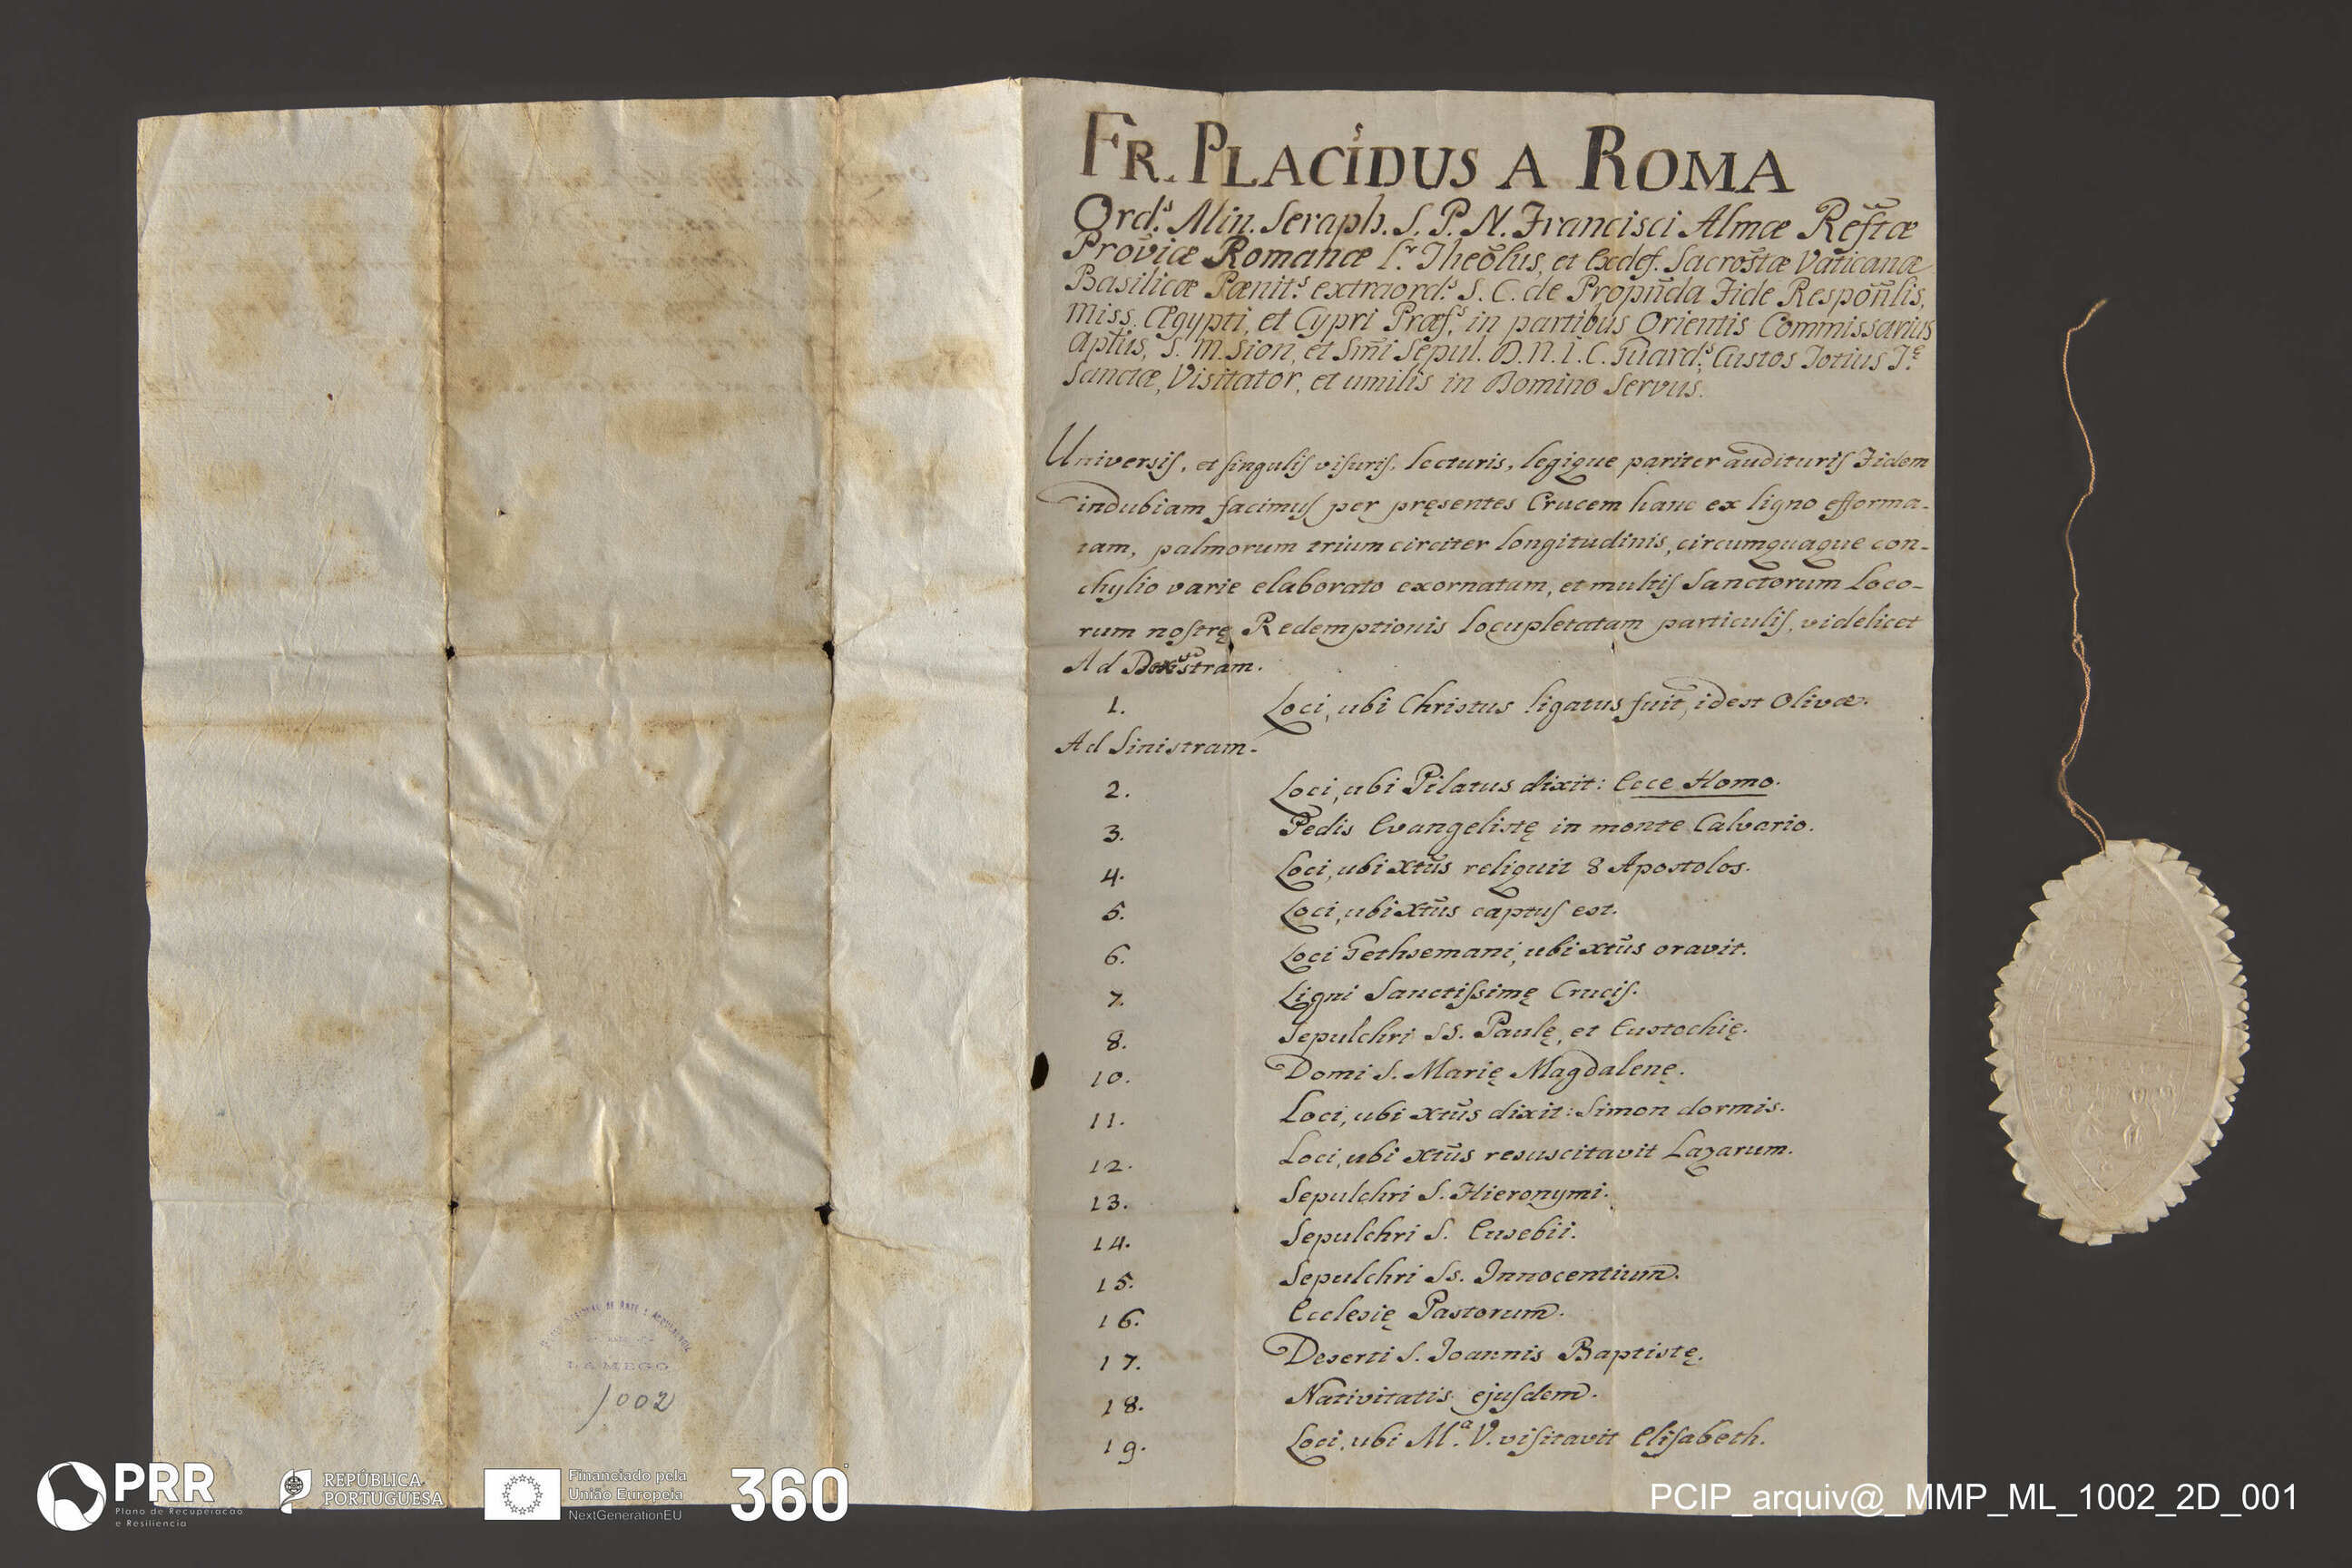 FR. PLACIDUS A ROMA
Ord.s Min. Seraph. S. P. N. Francisci Almæ Refr̃tæ
Prov̄iæ Romanæ l.r Theõlus, et Exdef. Sacrost̃æ Vaticanæ
Basilicæ Pænit.s extraord.s S. C. de Propñda Fide Respoñlis,
miss. Ægypti, et Cypri Præf.s in partibus Orientis Commissarius
Ap̃tus, S. M. Sion, et Sm̃i Sepul. D. N. I. C. Guard.s Custos Totius T.æ
Sanctæ, Visitator, et umilis in Domino Servus.
Universiſ, et ſinguliſ viſuriſ, lecturis, legique pariter audituriſ Fidem
indubiam facimuſ per pręsentes Crucem hanc ex ligno efforma-
tam, palmorum trium circiter longitudinis, circumquaque con-
chylio varie elaborato exornatam, et multiſ Sanctorum Loco-
rum noſtrę Redemptionis locupletatam particuliſ, videlicet
Ad Dexstram.
1. Loci, ubi Christus ligatus fuit, idest Olivæ.
Ad Sinistram.
2. Loci, ubi Pilatus dixit: Ecce Homo.
3. Pedis Evangelistę in monte Calvario.
4. Loci, ubi Xtũs reliquit 8 Apostolos.
5. Loci, ubi Xtũs captuſ est.
6. Loci Gethsemani, ubi xtũs oravit.
7. Ligni Sanctiſsimę Cruciſ.
8. Sepulchri SS. Paulę, et Eustochię.
10. Domi S. Marię Magdalenę.
11. Loci, ubi xtũs dixit: Simon dormis.
12. Loci, ubi xtũs resuscitavit Lazarum.
13. Sepulchri S. Hieronymi.
14. Sepulchri S. Eusebii.
15. Sepulchri Ss. Innocentium.
16. Ecclesię Pastorum.
17. Deserti S. Joannis Baptistę.
18. Nativitatis ejuſdem.
19. Loci, ubi M.a V. viſitavit Eliſabeth.
LAMEGO
1002
PRR
Plano de Recuperação
e Resiliência
REPÚBLICA
PORTUGUESA
Financiado pela
União Europeia
NextGenerationEU
360°
PCIP_arquiv@_MMP_ML_1002_2D_001